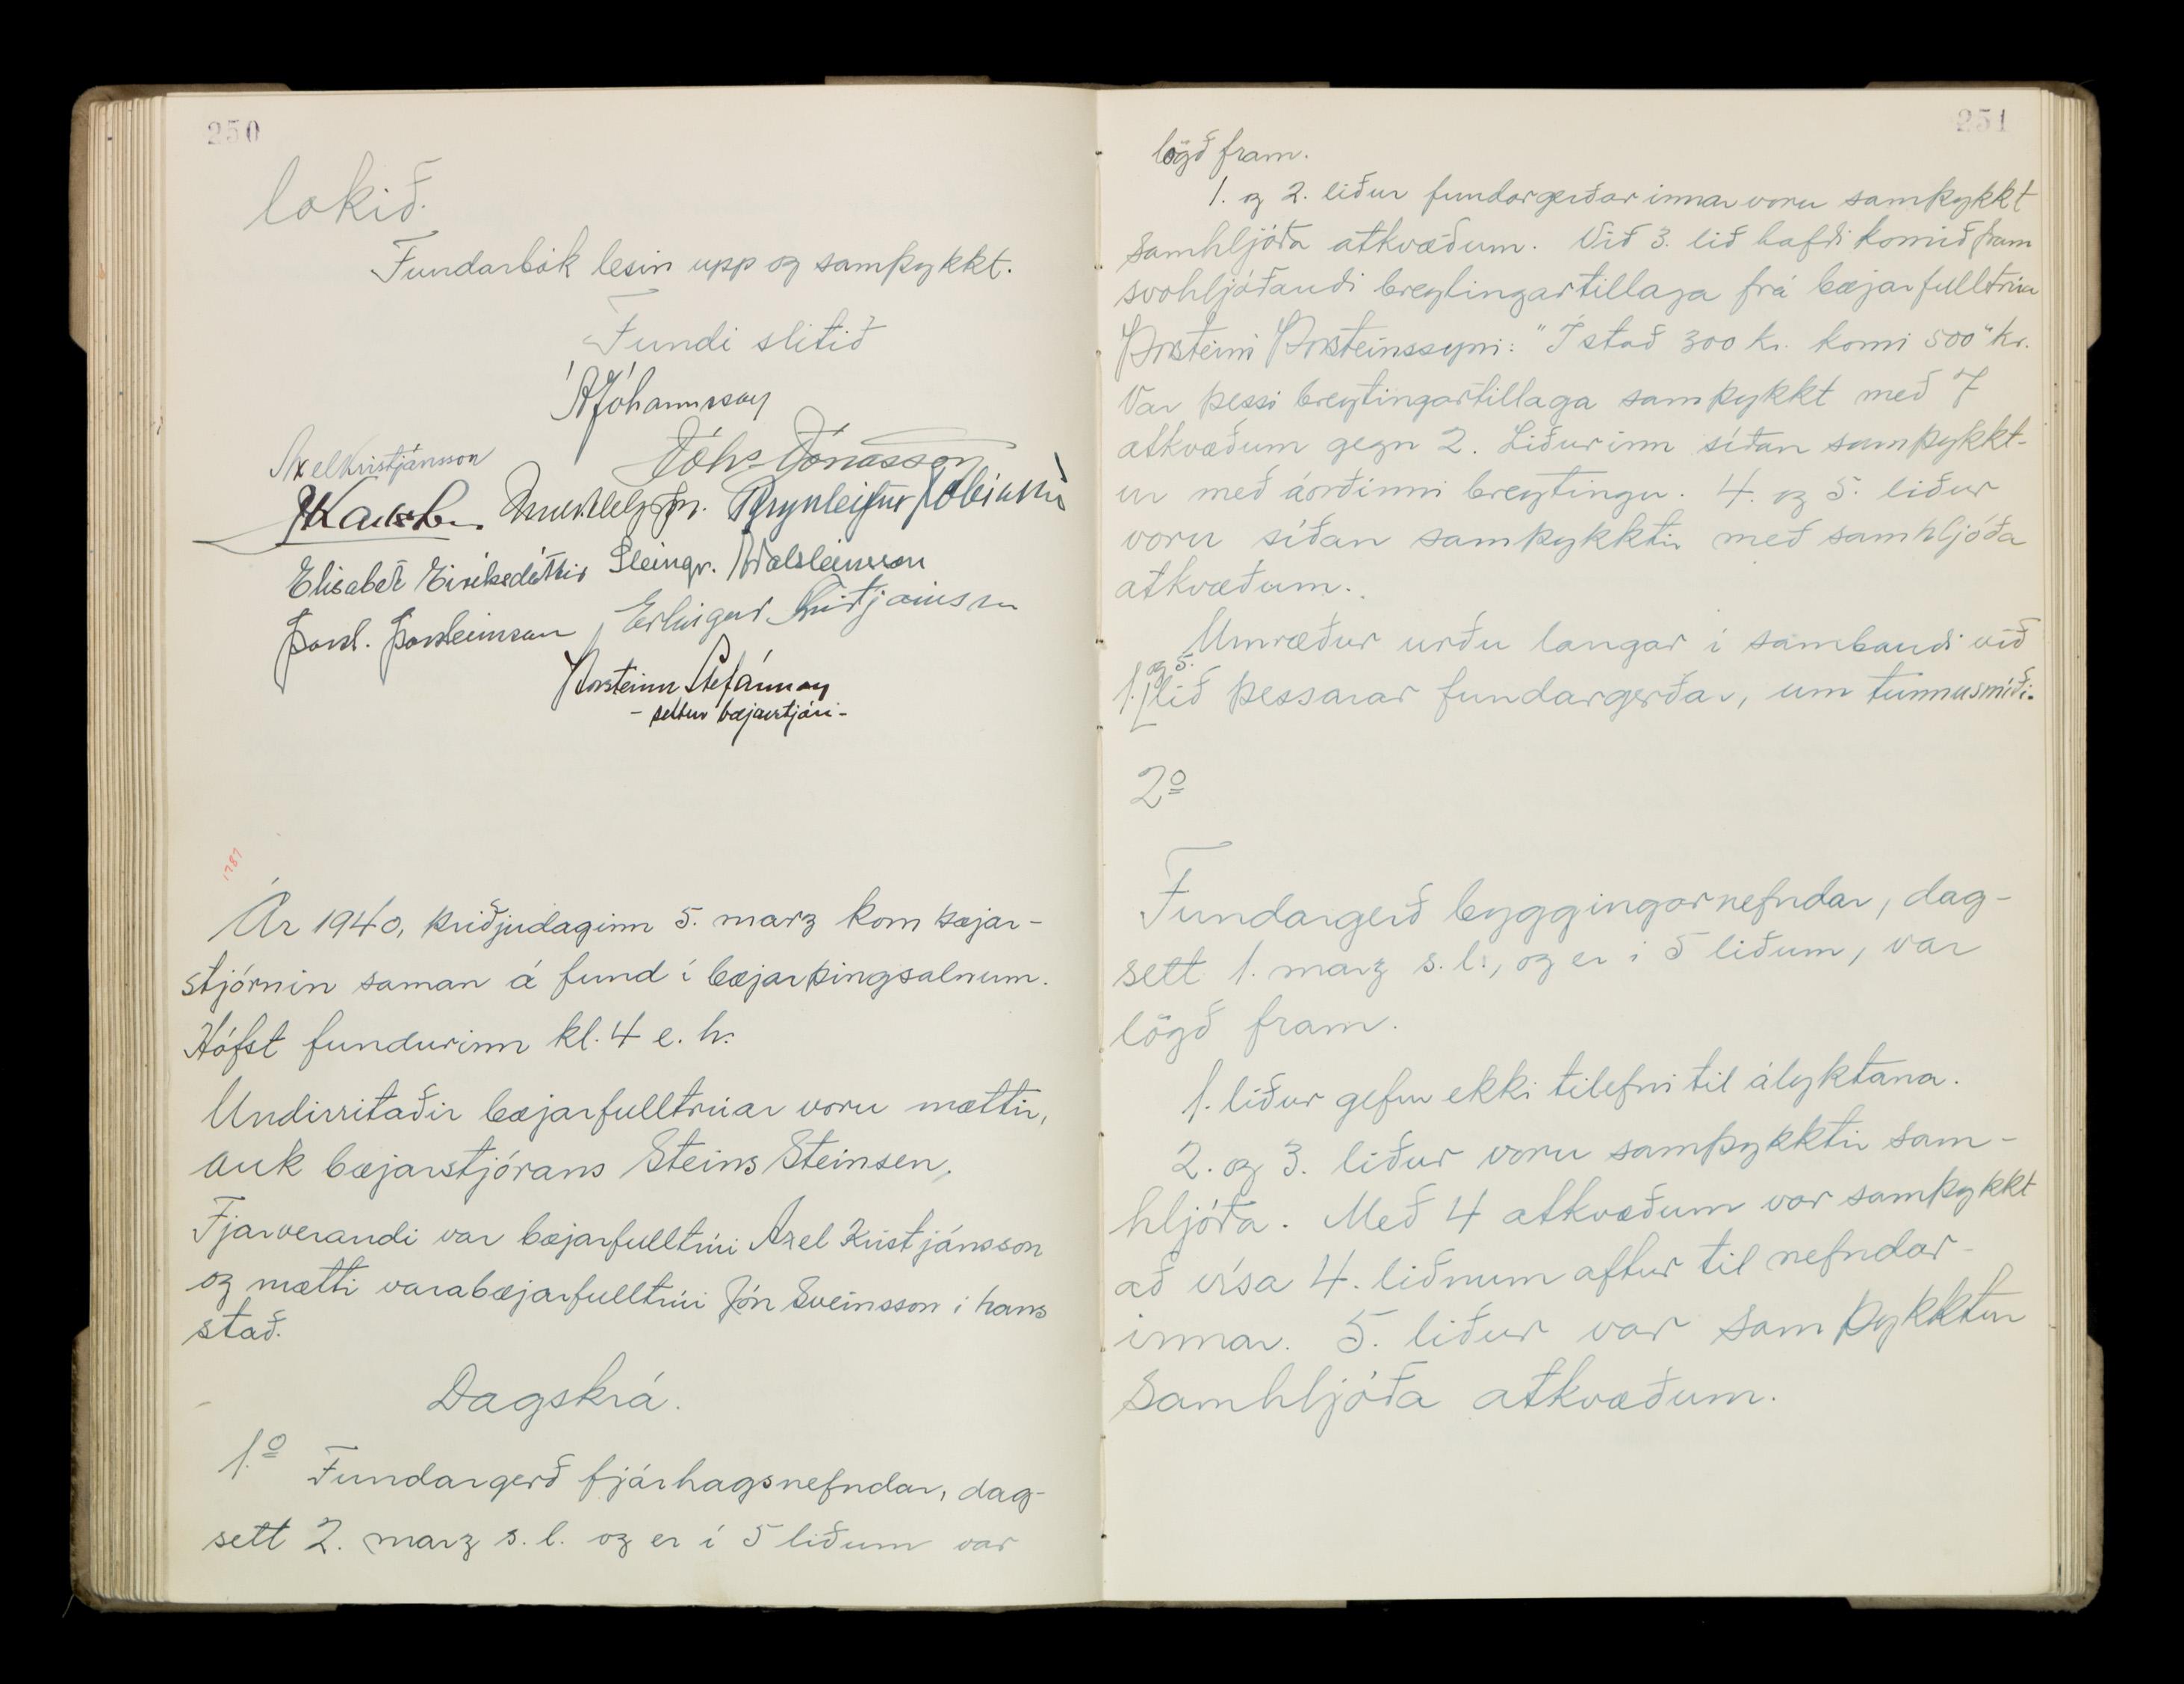 250
lokið.
Fundarbók lesin upp og samþykkt.
Fundi slitið
Á Jóhannsson
Axel Kristjánsson
Jóhs Jónasson
Brynleifur Tobiasson
Elísabet Eiríksdóttir Steingr. Aðalsteinsson
Þorst. Þorsteinsson Erlingur Friðjónsson
Þorsteinn Stefánsson
- settur bæjarstjóri -
1787
Ár 1940, þriðjudaginn 5. marz kom bæjar-
stjórnin saman á fund í bæjarþingsalnum.
Hófst fundurinn kl. 4 e. h.
Undirritaðir bæjarfulltrúar voru mættir,
auk bæjarstjórans Steins Steinsen,
Fjarverandi var bæjarfulltrúi Axel Kristjánsson
og mætti varabæjarfulltrúi Jón Sveinsson i hans
stað.
Dagskrá.
1.º Fundargerð fjárhagsnefndar, dag-
sett 2. marz s. l. og er í 5 liðum var
251
lögð fram.
1. og 2. liður fundargerðarinnar voru samþykkt
samhljóða atkvæðum. Við 3. lið hafði komið fram
svohljóðandi breytingartillaga frá bæjarfulltrúa
Þorsteini Þorsteinssyni: "Í stað 300 kr. komi 500" kr.
Var þessi breytingartillaga samþykkt með 7
atkvæðum gegn 2. Liðurinn síðan samþykkt-
ur með áorðinni breytingu. 4. og 5. liður
voru síðan samþykktir með samhljóða
atkvæðum.
Umræður urðu langar í sambandi við
og 5.
1. lið þessarar fundargerðar, um tunnusmíði.
2º
Fundargerð byggingarnefndar, dag-
sett 1. marz s. l., og er i 5 liðum, var
lögð fram.
1. liður gefur ekki tilefni til ályktana.
2. og 3. liður voru samþykktir sam-
hljóða. Með 4 atkvæðum var samþykkt
að vísa 4. liðnum aftur til nefndar-
innar. 5. liður var samþykktur
samhljóða atkvæðum.